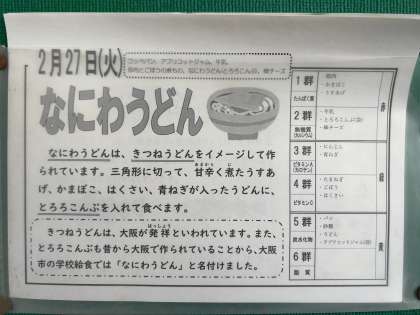 2月27日(火)
コッペパン、アプリコットジャム、牛乳
なにわうどん
なにわうどんは、きつねうどんをイメージして作
られています。三角形に切って、甘辛く煮たうすあ
げ、かまぼこ、はくさい、青ねぎが入ったうどんに、
とろろこんぶを入れて食べます。
きつねうどんは、大阪が発祥といわれています。また、
とろろこんぶも昔から大阪で作られていることから、大阪
市の学校給食では「なにわうどん」と名付けました。
1群
たんぱく質
・かまぼこ
・うすあげ
2群
無機質
(カルシウム)
・牛乳
・とろろこんぶ(袋)
・棒チーズ
3群
ビタミンA
(カロテン)
・にんじん
・青ねぎ
4群
ビタミンC
・たまねぎ
・ごぼう
・はくさい
5群
炭水化物
・パン
・砂糖
・うどん
・アプリコットジャム(袋)
6群
脂質
赤
緑
黄